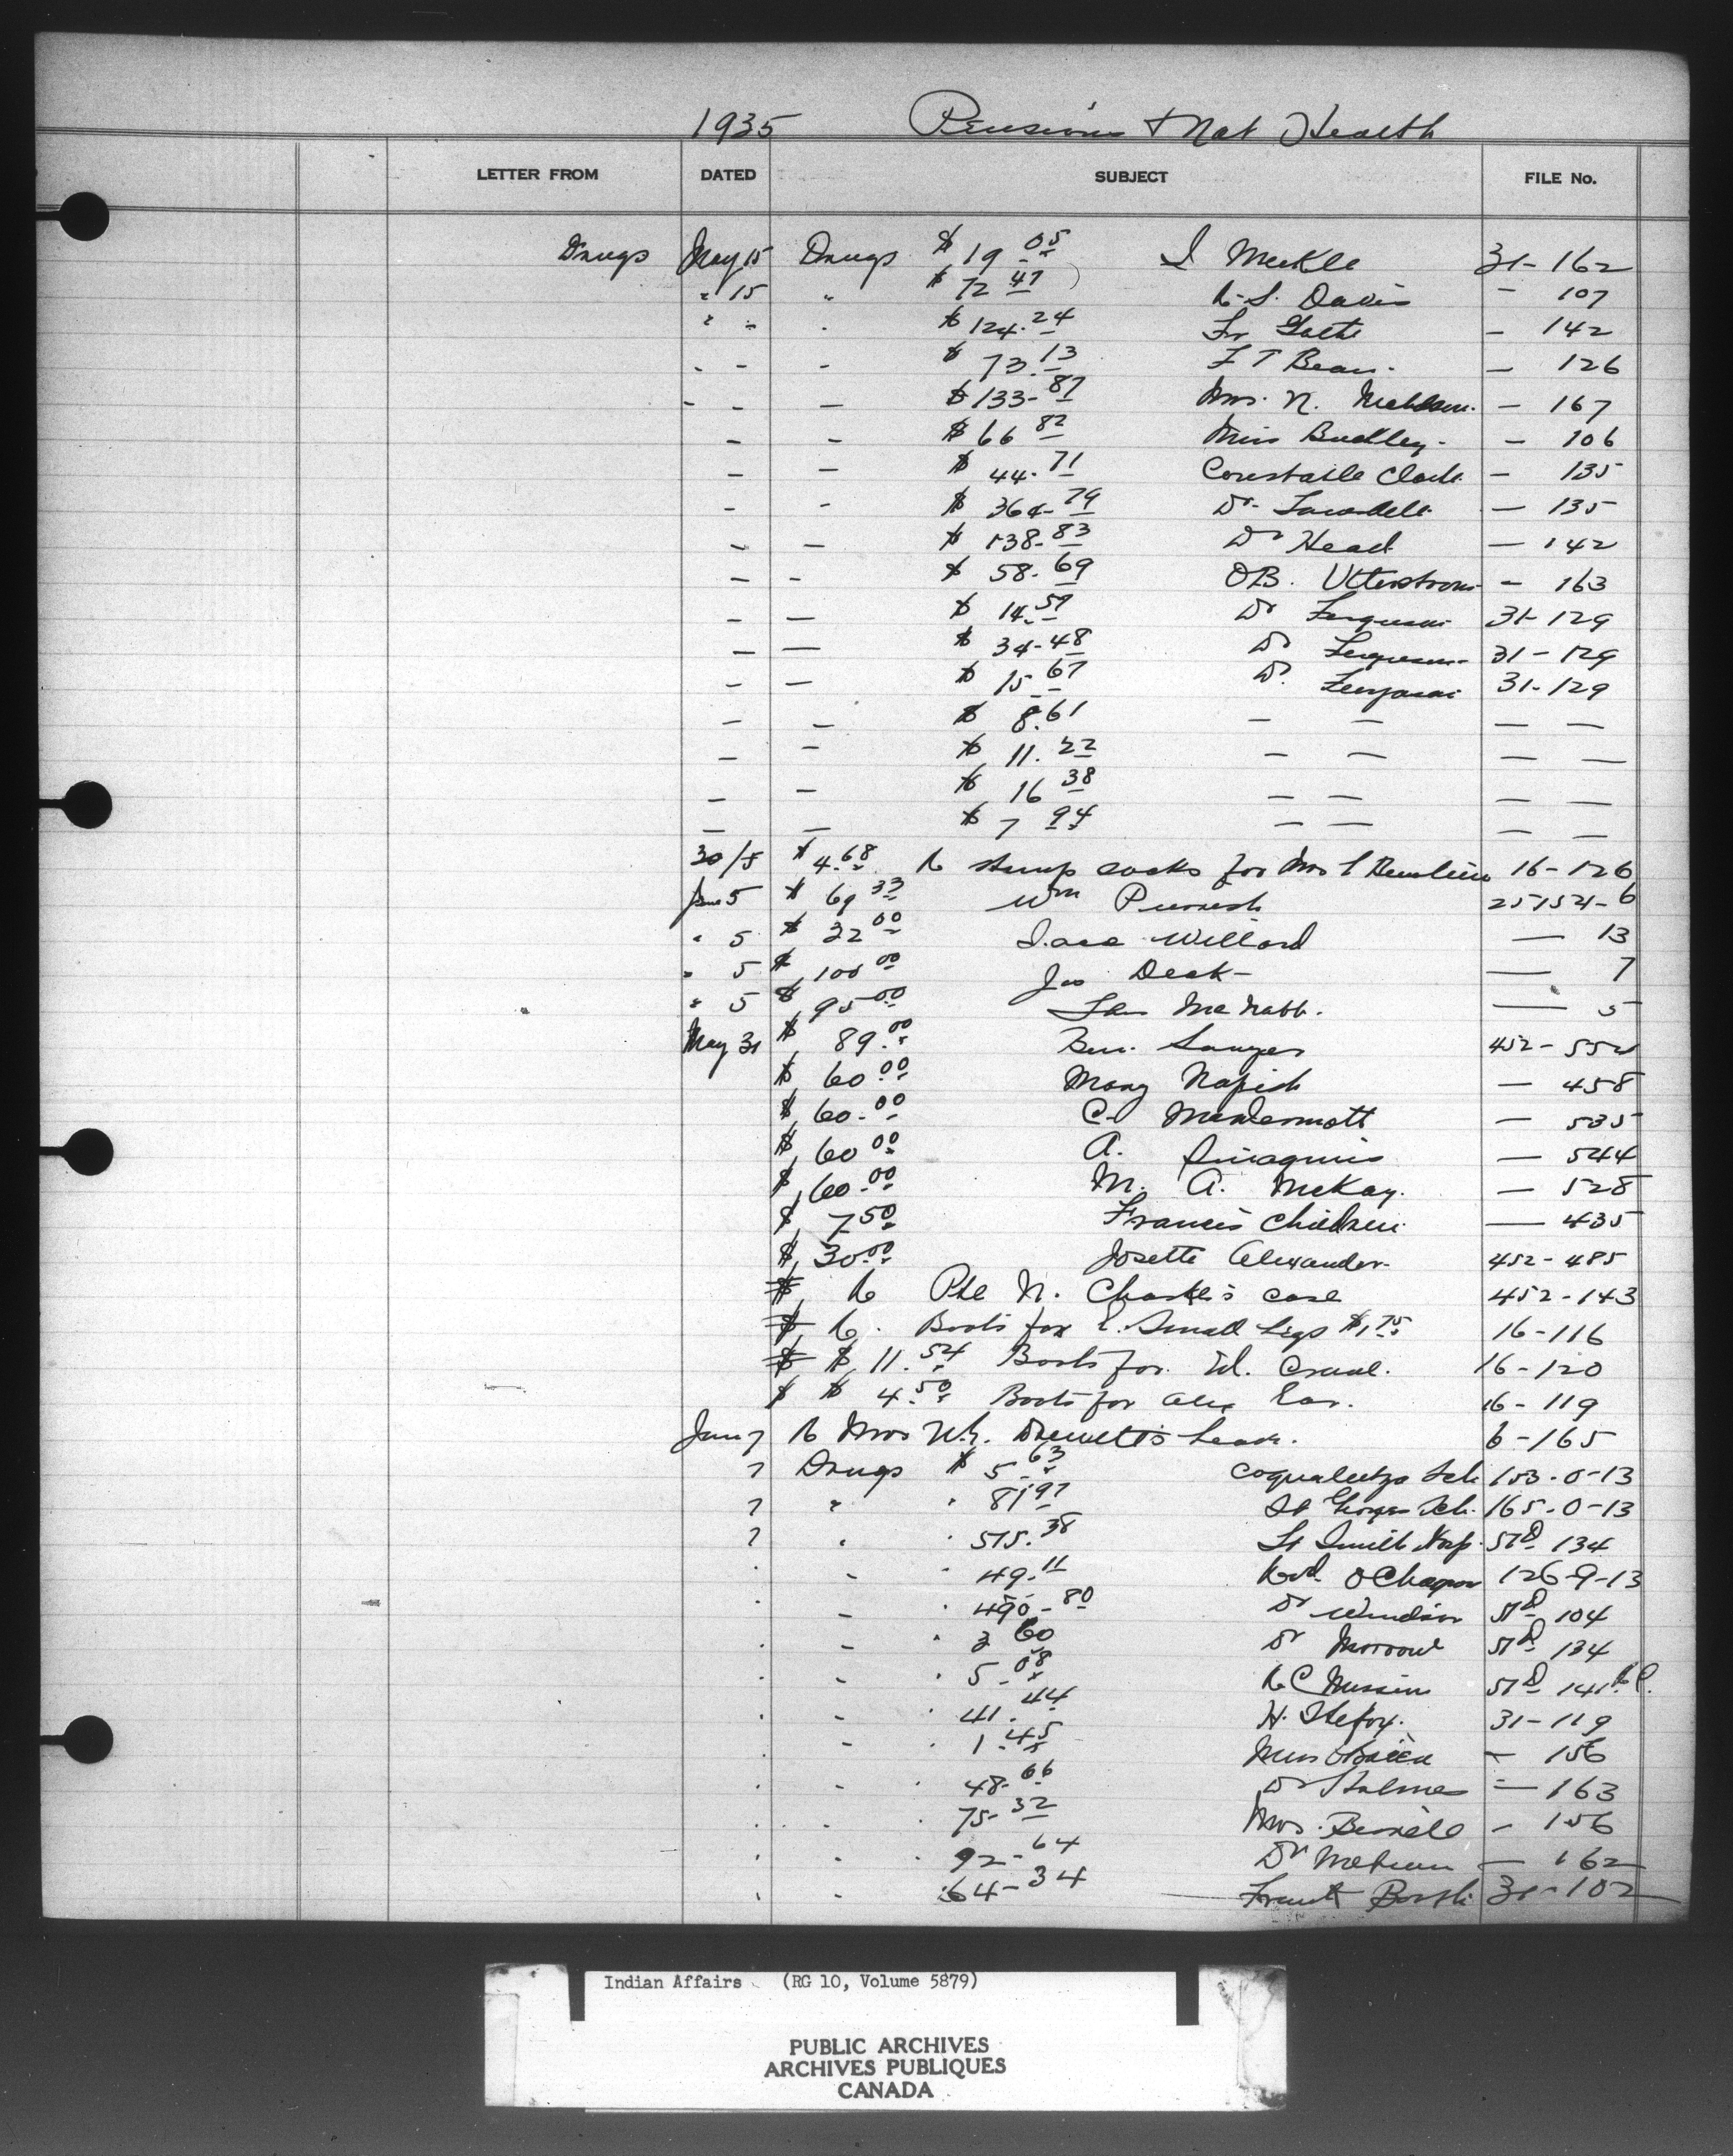 1935 Pensions & Nat Health
LETTER FROM DATED SUBJECT FILE No.
Drugs May 15 Drugs $19.05 I Meckle 31-162
" 15 " $72.47 R. S. Davis - 107
" - " $124.24 - 142
- - - $73.13 F T Bean. - 126
- - - $133-87 Mrs. N. - 167
- - $66 82 Miss - 106
- - $44.71 Constable Clark - 135
- - $364-79 Dr. - 135
- - $138-83 Dr Head - 142
- - $58.69 O.B. Utterstrom - 163
- - $14.57 Dr Ferguson 31-129
- - $34-48 Dr Ferguson 31-129
- - $15.67 Dr. Ferguson 31-129
- - $8.61 - - - -
- - $11.22 - - - -
- - $16 38 - - - -
- - $7 94 - - - -
30/5 $4.68 R stump socks for Mrs 16-126
June 5 $69 33 Wm 257154-6
" 5 $22 00 Isaac Willard - 13
" 5 $100 00 Jos - 7
" 5 $95 00 McNabb. - 5
May 31 $89.00 Ben. Sawyer 452-552
$60.00 Mary Napish - 458
$60.00 McDermott - 535
$60 00 A. - 544
$60.00 M. A. McKay. - 528
$7 50 Francis Children - 435
$30.00 Josette Alexander 452-485
$ R Pte N. Charles's case 452-143
$ R. Boots for E. Small Legs $1.75 16-116
$ $11.54 Boots for Ed. 16-120
$ $4.50 Boots for Alex Ear. 16-119
June 7 R Mrs W. Drewett's 6-165
7 Drugs $5.63 Coqualeetza Sch 153-0-13
7 " " 81 97 St Georges Sch. 165-0-13
7 " " 575.38 Ft Smith Hosp. 57D 134
" - " 49.11 126-9-13
" - " 490-80 Dr Windsor 57D 104
" - " 3 60 Dr Morrow 57D 134
" - " 5.08 R C Mission 57D 141
" - " 41.44 H. 31-119
- " 1.45 Miss O'Brien - 156
" - " 48.66 Dr Holmes - 163
" " " 75-32 Mrs. - 156
" " " 92-64 Dr - 162
" " 64-34 Frank 31-102
Indian Affairs (RG 10, Volume 5879)
PUBLIC ARCHIVES
ARCHIVES PUBLIQUES
CANADA